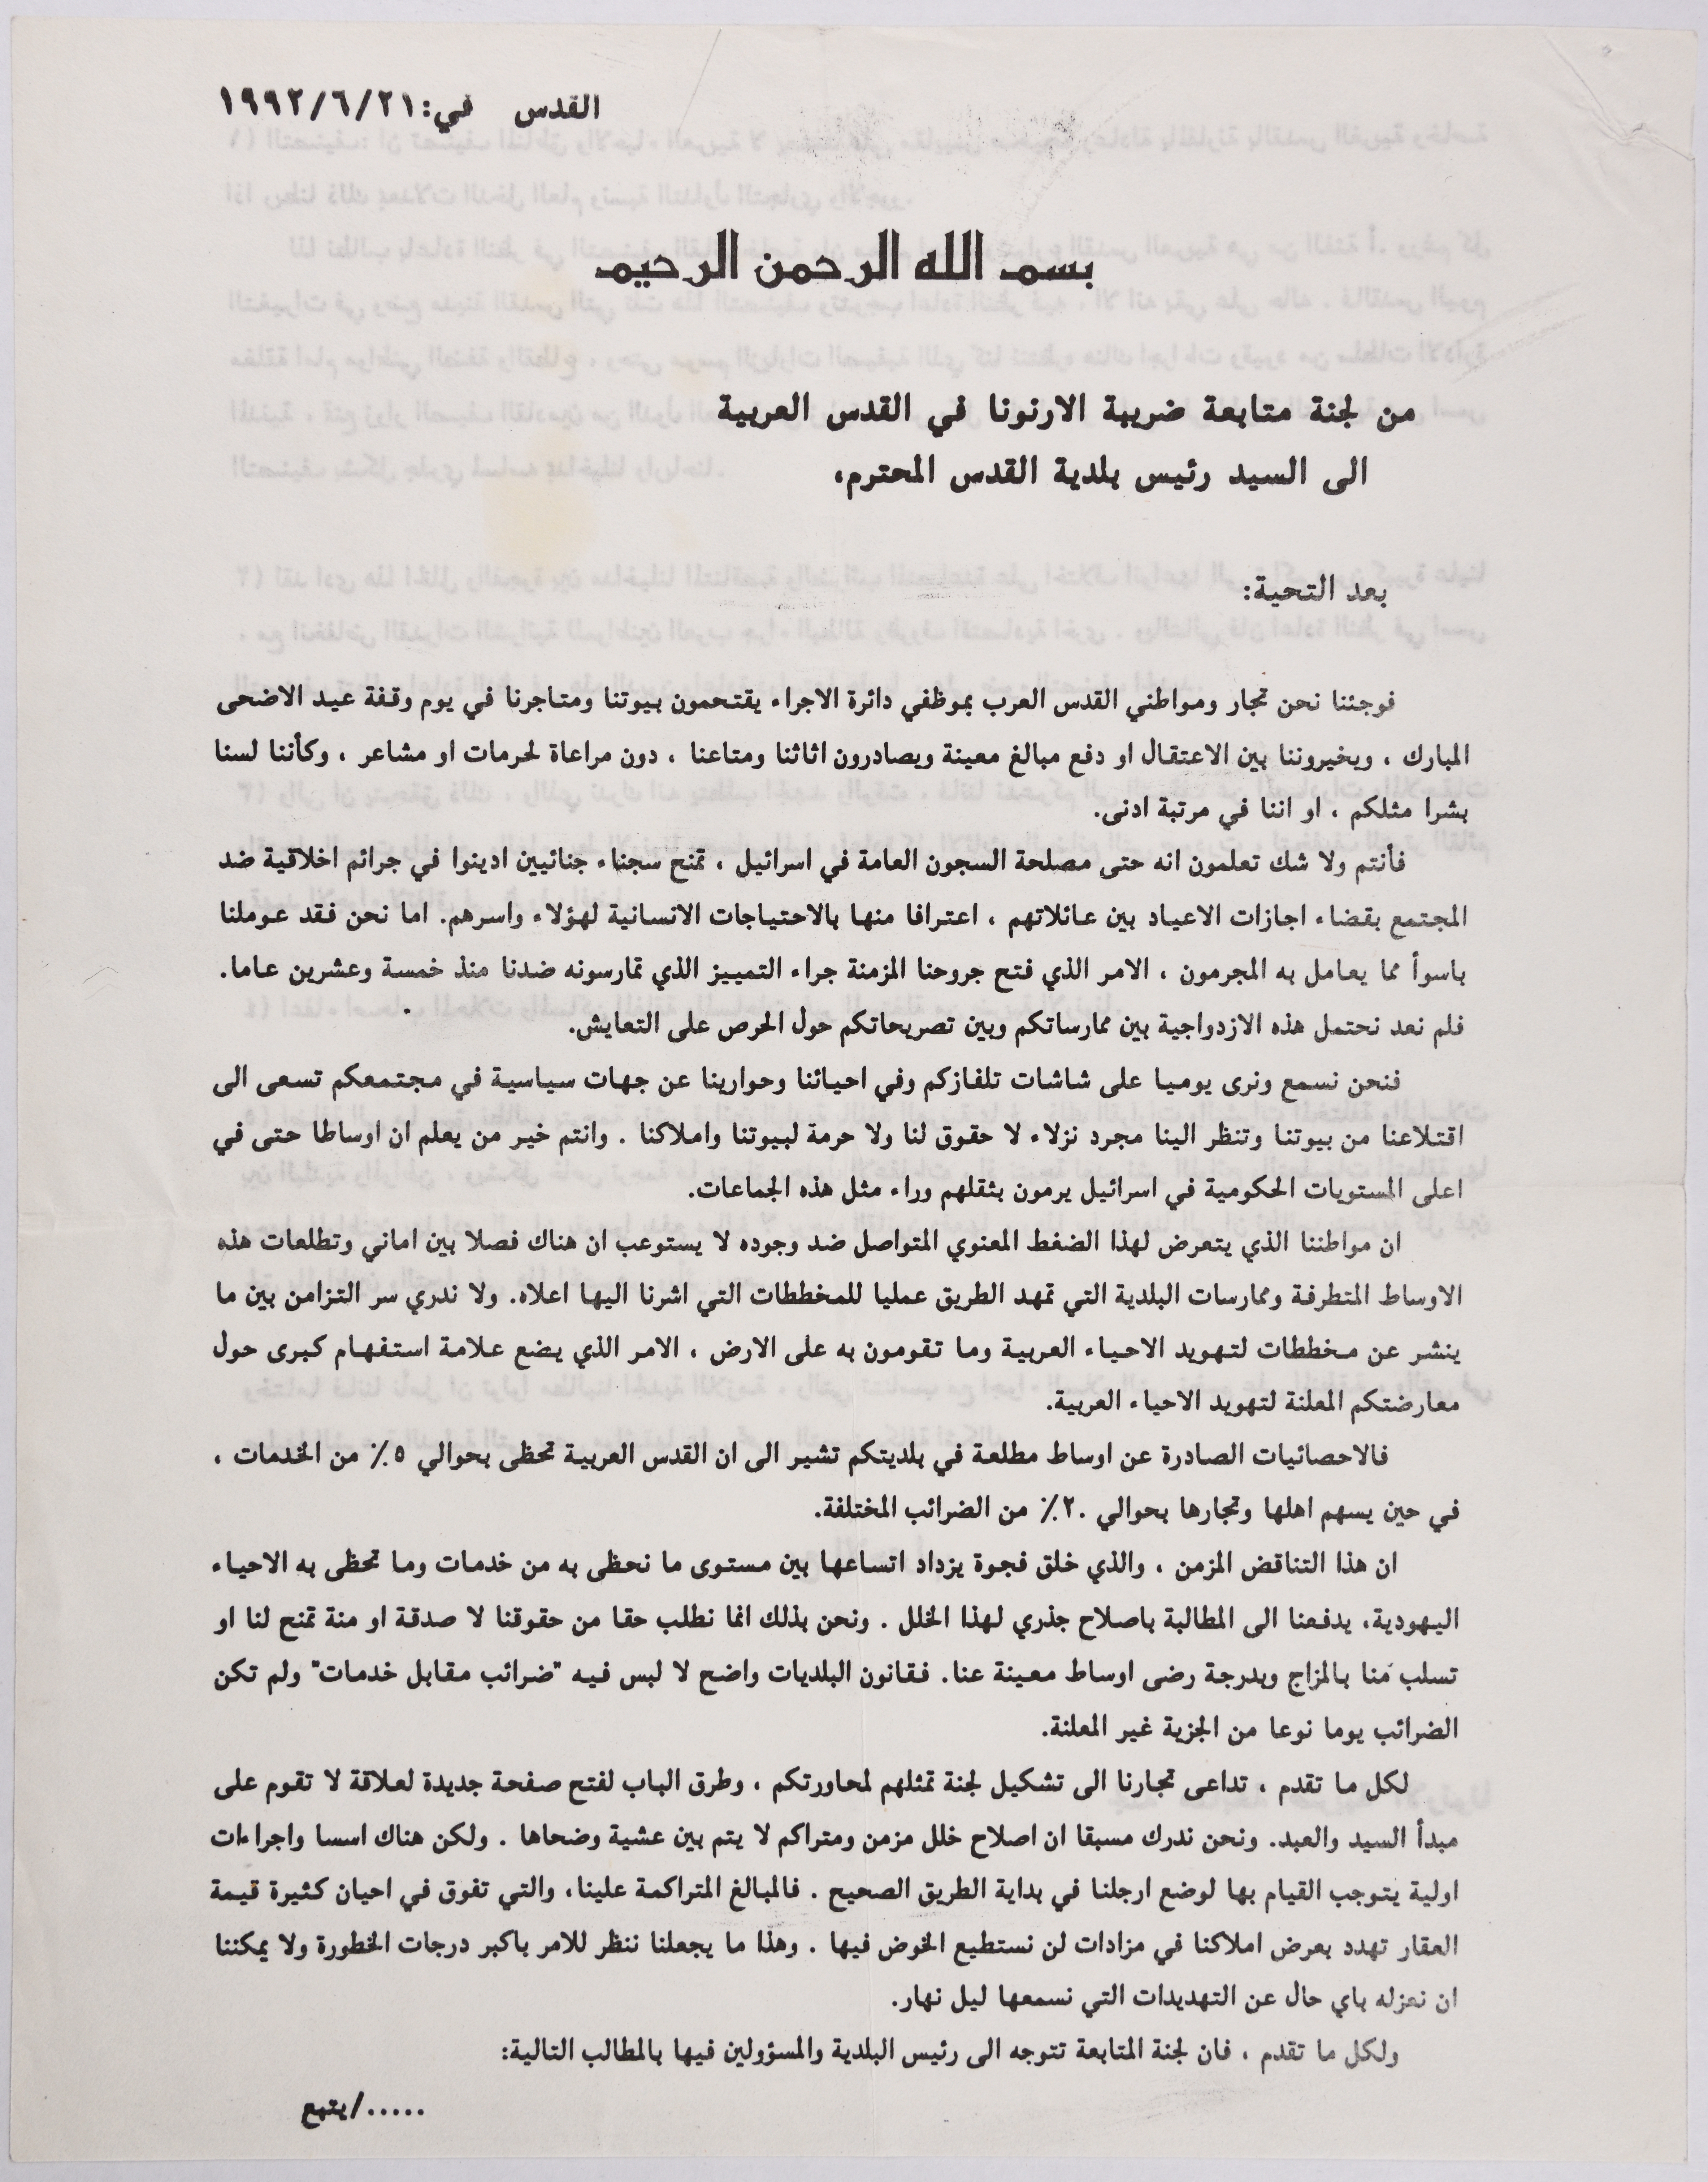 القدس في: ١٩٩٢/٦/٢١
بسم الله الرحمن الرحيم
من لجنة متابعة ضريبة الارنونا في القدس العربية
الى السيد رئيس بلدية القدس المحترم،
بعد التحية:
فوجئنا نحن تجار ومواطني القدس العرب بموظفي دائرة الاجراء يقتحمون بيوتنا ومتاجرنا في يوم وقفة عيد الاضحى
المبارك ، ويخيروننا بين الاعتقال او دفع مبالغ معينة ويصادرون اثاثنا ومتاعنا ، دون مراعاة لحرمات او مشاعر ، وكأننا لسنا
بشرا مثلكم ، او اننا في مرتبة ادنى.
فأنتم ولا شك تعلمون انه حتى مصلحة السجون العامة في اسرائيل ، تمنح سجناء جنائيين ادينوا في جرائم اخلاقية ضد
المجتمع بقضاء اجازات الاعياد بين عائلاتهم ، اعترافا منها بالاحتياجات الانسانية لهؤلاء واسرهم. اما نحن فقد عوملنا
باسوأ مما يعامل به المجرمون ، الامر الذي فتح جروحنا المزمنة جراء التمييز الذي تمارسونه ضدنا منذ خمسة وعشرين عاما.
فلم نعد نحتمل هذه الازدواجية بين ممارساتكم وبين تصريحاتكم حول الحرص على التعايش.
فنحن نسمع ونرى يوميا على شاشات تلفازكم وفي احيائنا وحوارينا عن جهات سياسية في مجتمعكم تسعى الى
اقتلاعنا من بيوتنا وتنظر الينا مجرد نزلاء لا حقوق لنا ولا حرمة لبيوتنا واملاكنا . وانتم خير من يعلم ان اوساطا حتى في
اعلى المستويات الحكومية في اسرائيل يرمون بثقلهم وراء مثل هذه الجماعات.
ان مواطننا الذي يتعرض لهذا الضغط المعنوي المتواصل ضد وجوده لا يستوعب ان هناك فصلا بين اماني وتطلعات هذه
الاوساط المتطرفة وممارسات البلدية التي تمهد الطريق عمليا للمخططات التي اشرنا اليها اعلاه. ولا ندري سر التزامن بين ما
ينشر عن مخططات لتهويد الاحياء العربية وما تقومون به على الارض ، الامر الذي يضع علامة استفهام كبرى حول
معارضتكم المعلنة لتهويد الاحياء العربية.
فالاحصائيات الصادرة عن اوساط مطلعة في بلديتكم تشير الى ان القدس العربية تحظى بحوالي ٥٪ من الخدمات ،
في حين يسهم اهلها وتجارها بحوالي ٢٠٪ من الضرائب المختلفة.
ان هذا التناقض المزمن ، والذي خلق فجوة يزداد اتساعها بين مستوى ما نحظى به من خدمات وما تحظى به الاحياء
اليهودية، يدفعنا الى المطالبة باصلاح جذري لهذا الخلل . ونحن بذلك انما نطلب حقا من حقوقنا لا صدقة او منة تمنح لنا او
تسلب منا بالمزاج وبدرجة رضى اوساط معينة عنا. فقانون البلديات واضح لا لبس فيه "ضرائب مقابل خدمات" ولم تكن
الضرائب يوما نوعا من الجزية غير المعلنة.
لكل ما تقدم ، تداعى تجارنا الى تشكيل لجنة تمثلهم لمحاورتكم ، وطرق الباب لفتح صفحة جديدة لعلاقة لا تقوم على
مبدأ السيد والعبد. ونحن ندرك مسبقا ان اصلاح خلل مزمن ومتراكم لا يتم بين عشية وضحاها . ولكن هناك اسسا واجراءات
اولية يتوجب القيام بها لوضع ارجلنا في بداية الطريق الصحيح . فالمبالغ المتراكمة علينا، والتي تفوق في احيان كثيرة قيمة
العقار تهدد بعرض املاكنا في مزادات لن نستطيع الخوض فيها . وهذا ما يجعلنا ننظر للامر باكبر درجات الخطورة ولا يمكننا
ان نعزله باي حال عن التهديدات التي نسمعها ليل نهار.
ولكل ما تقدم ، فان لجنة المتابعة تتوجه الى رئيس البلدية والمسؤولين فيها بالمطالب التالية:
...../يتبع